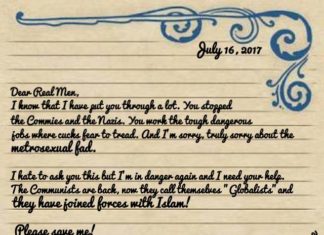 July 16, 2017
Dear Real Men,
I know that I have put you through a lot. You stopped
the Commies and the Nazis. You work the tough dangerous
jobs where cucks fear to tread. And I'm sorry, truly sorry about the
metrosexual fad.
I hate to ask you this but I'm in danger again and I need your help.
The Communists are back, now they call themselves " Globalists" and
they have joined forces with Islam!
Please save me!